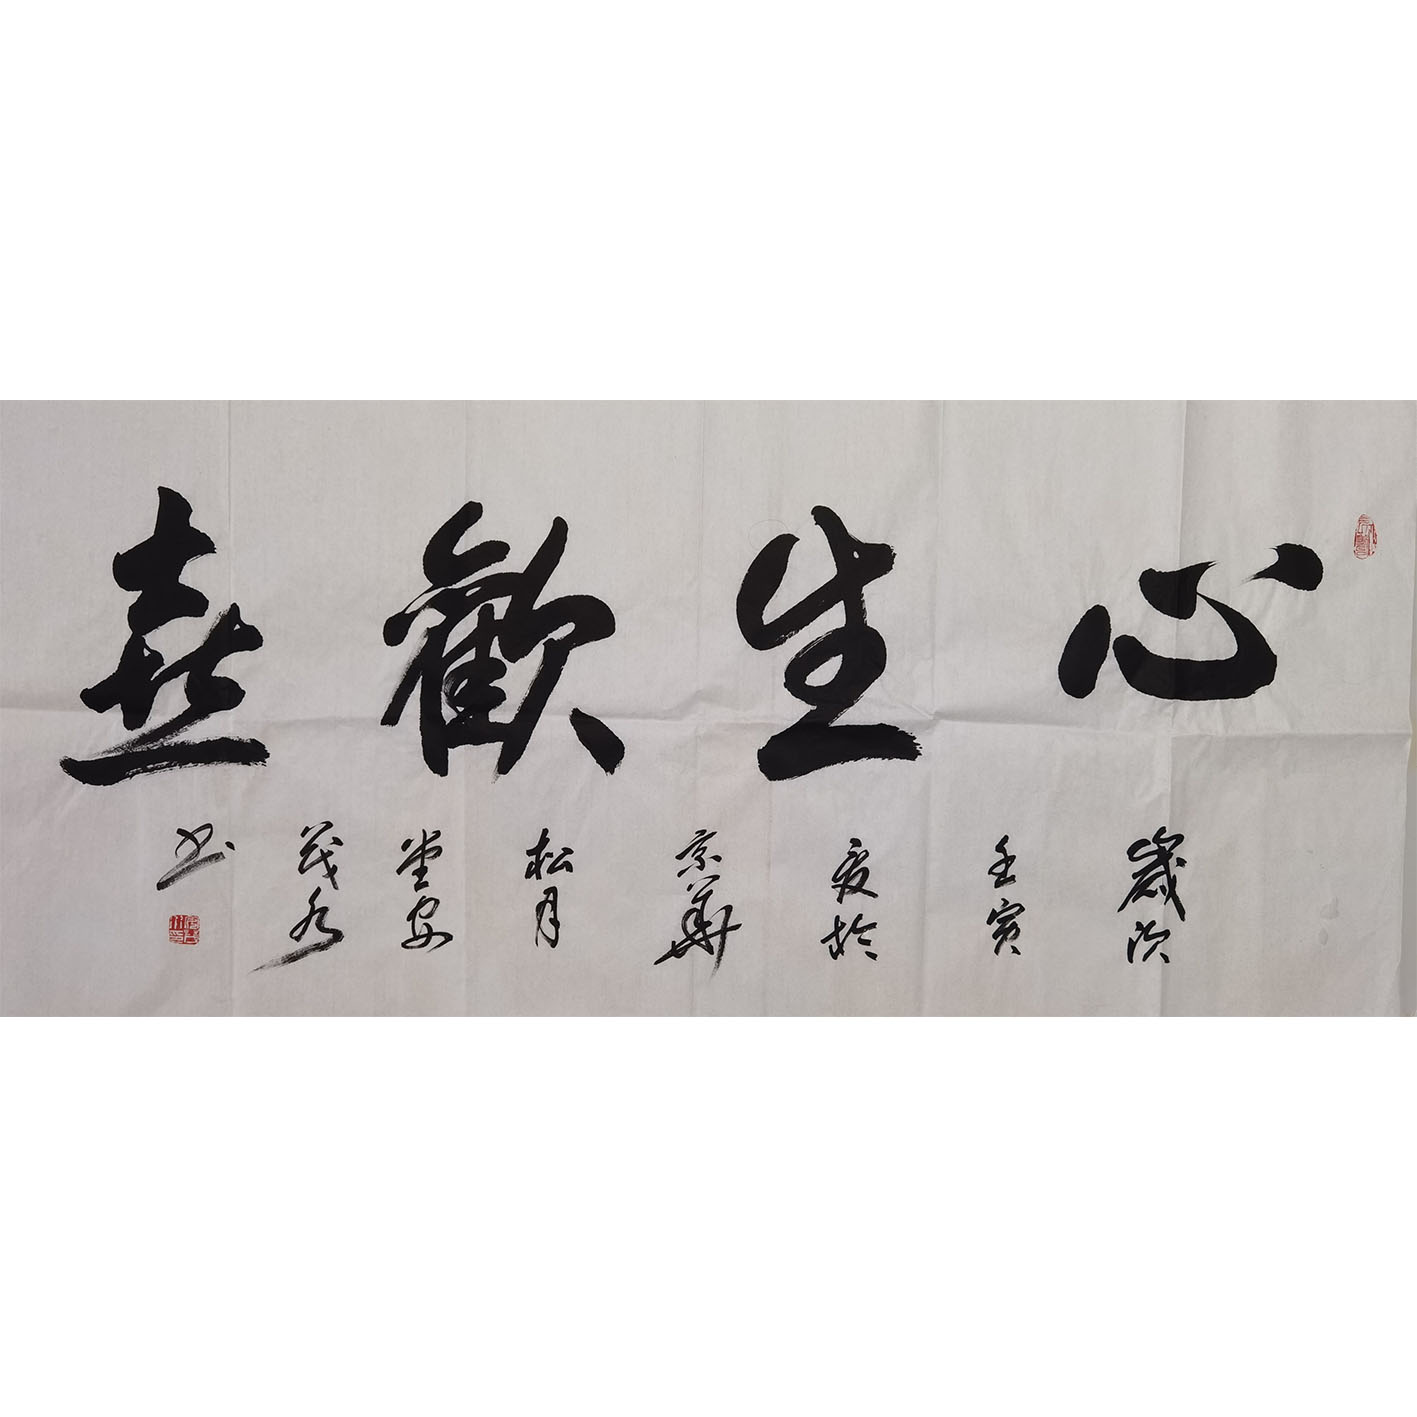 心生歡喜
歲次
壬寅
夏於
京華
松月
堂安
茂水
书